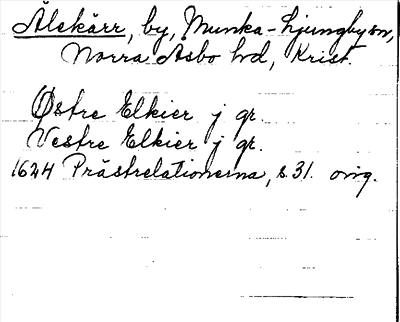 Älekärr, by, Munka-Ljungby sn,
Norra Åsbo hd, Krist.
Østre Elkier j gr.
Vestre Elkier j gr.
1624 Prästrelationerna, s. 31. orig.